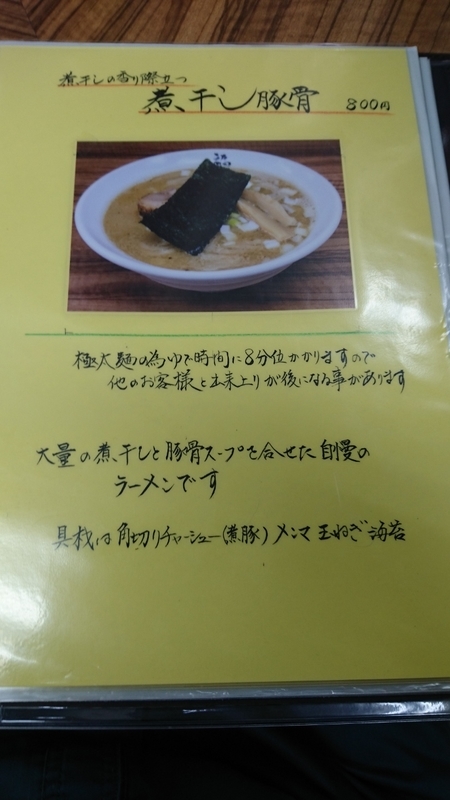 煮干しの香り際立つ
煮干し豚骨 800円
極太麺の為ゆで時間に8分位かかりますので
他のお客様と出来上りが後になる事があります
大量の煮干しと豚骨スープを合せた自慢の
ラーメンです
具材は角切りチャーシュー(煮豚)メンマ玉ねぎ海苔